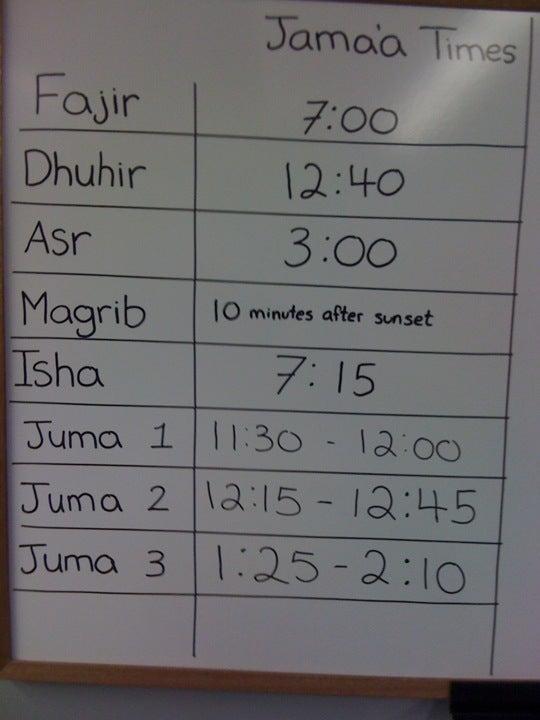 Jama'a Times
Fajir 7:00
Dhuhir 12:40
Asr 3:00
Magrib 10 minutes after sunset
Isha 7:15
Juma 1 11:30 - 12:00
Juma 2 12:15 - 12:45
Juma 3 1:25 - 2:10